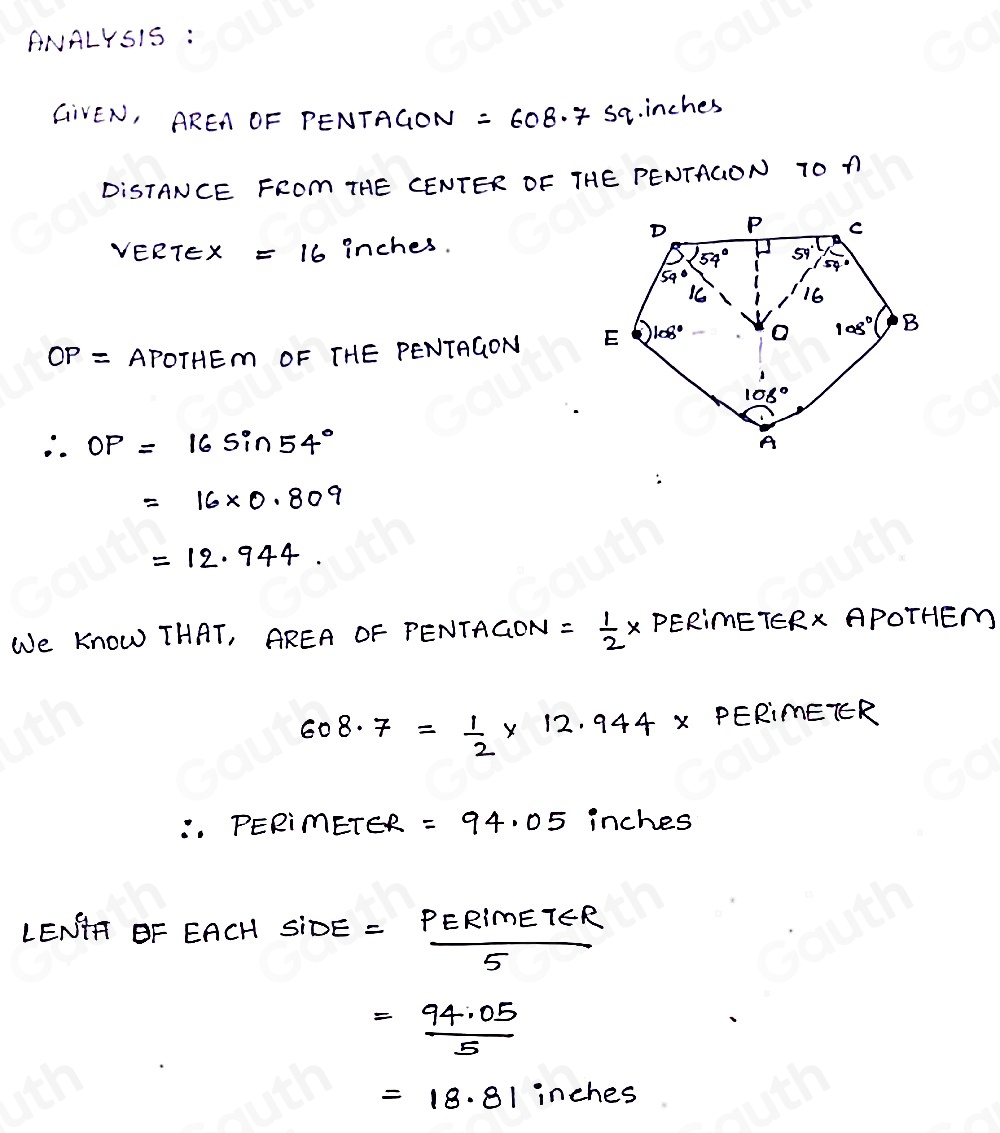 ANALYSIS :
GIVEN, AREA OF PENTAGON = 608.7 sq.inches
DISTANCE FROM THE CENTER OF THE PENTAGON TO A
VERTEX = 16 inches.
D P C
54° 54° 54° 54°
16 16
E 108° O 108° B
108°
A
OP = APOTHEM OF THE PENTAGON
∴ OP = 16 Sin 54°
= 16 × 0.809
= 12.944 .
We know THAT, AREA OF PENTAGON = 1/2 × PERIMETER × APOTHEM
608.7 = 1/2 × 12.944 × PERIMETER
∴ PERIMETER = 94.05 inches
OF EACH SIDE = PERIMETER / 5
= 94.05 / 5
= 18.81 inches
Gauth